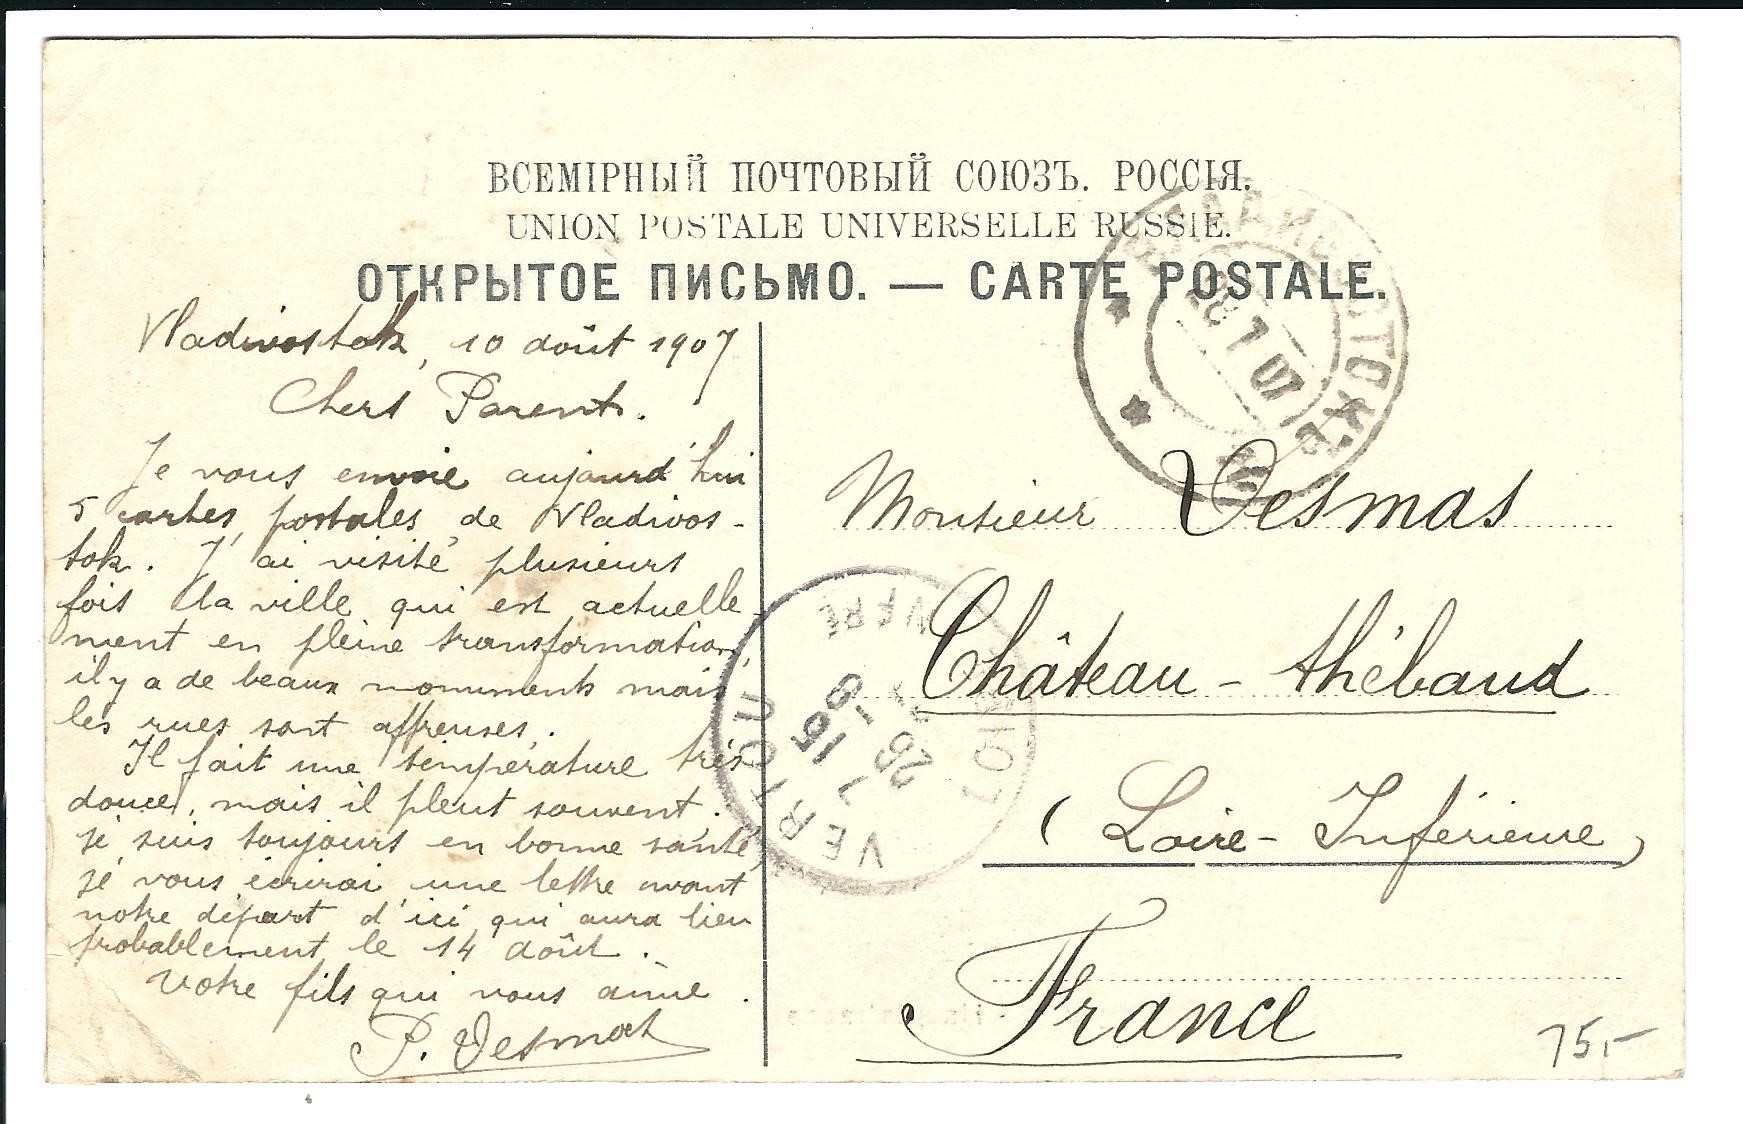 ВСЕМІРНЫЙ ПОЧТОВЫЙ СОЮЗЪ. РОССІЯ.
UNION POSTALE UNIVERSELLE RUSSIE.
ОТКРЫТОЕ ПИСЬМО. — CARTE POSTALE.
Vladivostok, 10 août 1907
Chers Parents.
Je vous envoie aujourd'hui
5 cartes postales de Vladivos-
tok. J'ai visité plusieurs
fois la ville qui est actuelle-
ment en pleine transformation,
il y a de beaux monuments mais
les rues sont affreuses.
Il fait une température très
douce, mais il pleut souvent.
je suis toujours en bonne santé,
je vous écrirai une lettre avant
notre départ d'ici qui aura lieu
probablement le 14 août.
Votre fils qui vous aime.
P.
ВЛАДИВОСТОКЪ
28 7 07
Monsieur
Château-thébaud
(Loire-Inférieure)
France
VERTOU
75,-